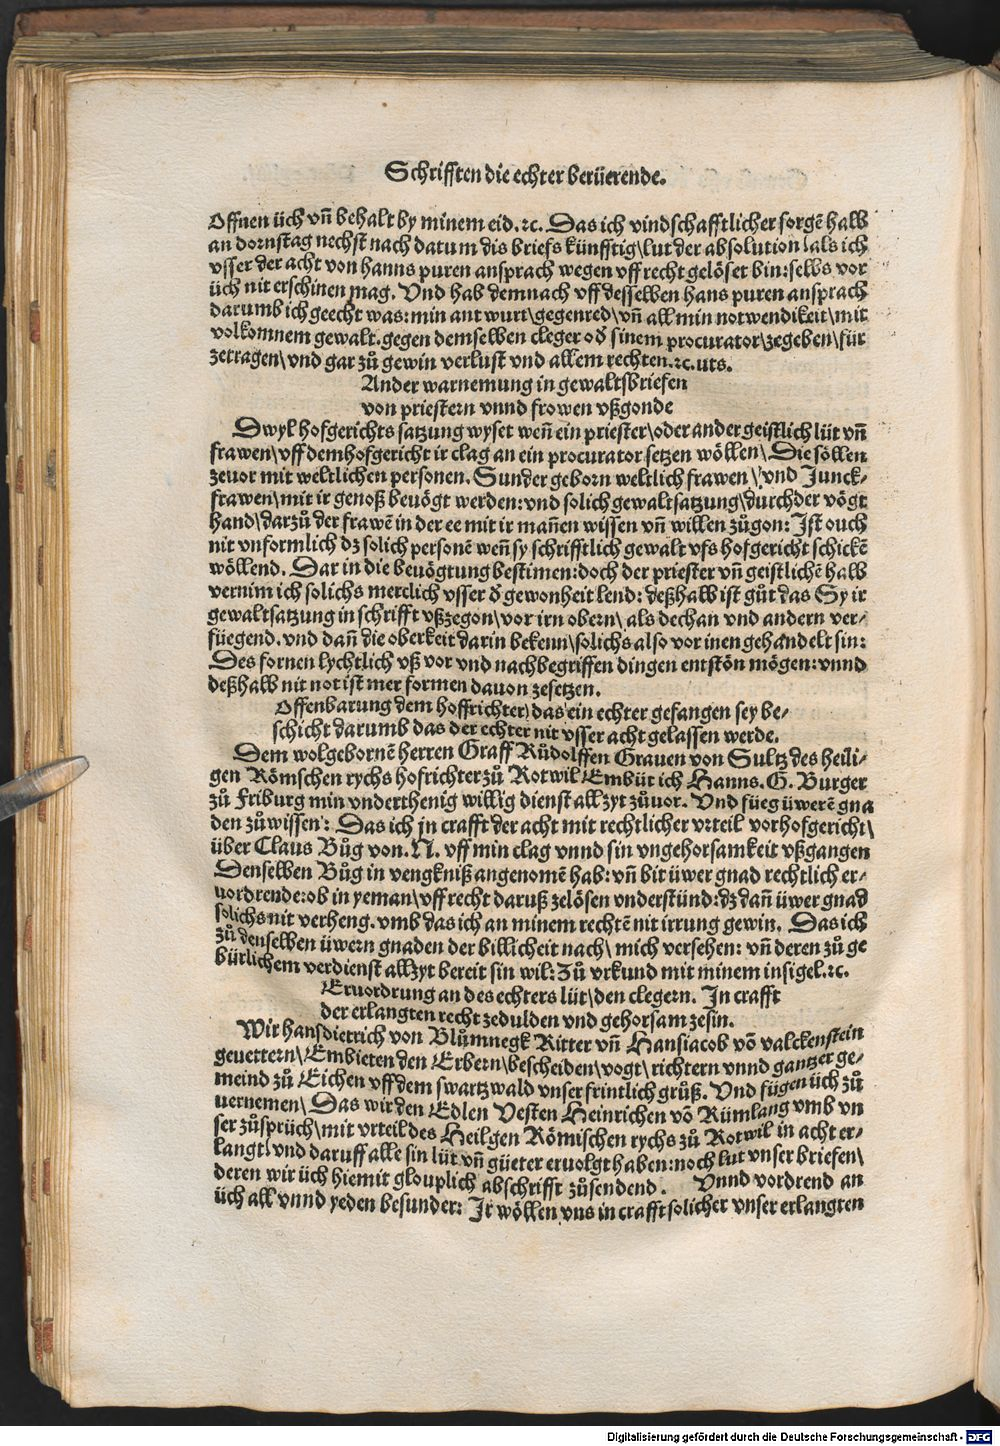 Schrifften die echter berüerende.
Offnen üch vñ behalt by minem eid. ꝛc. Das ich vindschafftlicher sorgē halb
an dornstag nechst nach datum dis briefs künfftig\lut der absolution\als ich
vsser der acht von hanns puren ansprach wegen vff recht gelöset bin:selbs vor
üch nit erschinen mag. Vnd hab demnach vff desselben hans puren ansprach
darumb ich geecht was:min antwurt\gegenred\vñ all min notwendikeit\mit
volkomnem gewalt.gegen demselben cleger oď sinem procurator\zegeben\für
zetragen\vnd gar zů gewin verlust vnd allem rechten.ꝛc.uts.
Ander warnemung in gewaltsbriefen
von priestern vnnd frowen vßgonde
Dwyl hofgerichts satzung wyset weñ ein priester\oder ander geistlich lüt vñ
frawen\vff dem hofgericht ir clag an ein procurator setzen wöllen\Die söllen
zeuor mit weltlichen personen. Sunder geborn weltlich frawen\vnd Junck⸗
frawen\mit ir genoß beuögt werden:vnd solich gewaltsatzung\durch der vögt
hand\darzů der frawē in der ee mit ir mañen wissen vñ willen zůgon: Ist ouch
nit vnformlich dz solich personē weñ sy schrifftlich gewalt vfs hofgericht schickē
wöllend. Dar in die beuögtung bestimen:doch der priester vñ geistlichē halb
vernim ich solichs merclich vsser ď gewonheit lend: deßhalb ist gůt das Sy ir
gewaltsatzung in schrifft vßzegon\vor irn obern\als dechan vnd andern ver⸗
füegend.vnd dañ die oberkeit darin bekenn\solichs also vor inen gehandelt sin:
Des fornen lychtlich vß vor vnd nachbegriffen dingen entstōn mögen:vnnd
deßhalb nit not ist mer formen dauon zesetzen.
Offenbarung dem hoffrichter\das ein echter gefangen sey be⸗
schicht darumb das der echter nit vsser acht gelassen werde.
Dem wolgebornē herren Graff Růdolffen Grauen von Sultz des heili⸗
gen Römschen rychs hofrichter zů Rotwil Embüt ich Hanns. G. Burger
zů Friburg min vnderthenig willig dienst allzyt zůuor. Vnd füeg üwerē gna
den zůwissen: Das ich jn crafft der acht mit rechtlicher vrteil vorhofgericht\
über Claus Bůg von. N. vff min clag vnnd sin vngehorsamkeit vßgangen
Denselben Bůg in vengkniß angenomē hab:vñ bit üwer gnad rechtlich er⸗
uordrende:ob in yeman\vff recht daruß zelösen vnderstünd:dz dañ üwer gnad
solichs nit verheng.vmb das ich an minem rechtē nit irrung gewin. Das ich
zů denselben üwern gnaden der billicheit nach\mich versehen: vñ deren zů ge
bürlichem verdienst allzyt bereit sin wil:Zů vrkund mit minem insigel.ꝛc.
Eruordrung an des echters lüt\den clegern. In crafft
der erlangten recht zedulden vnd gehorsam zesin.
Wir hansdietrich von Blůmnegk Ritter vñ Hansiacob vō valckenstein
geuettern\Embieten den Erbern\bescheiden\vogt\richtern vnnd gantzer ge⸗
meind zů Eichen vff dem swartzwald vnser frintlich grůß. Vnd fügen üch zů
uernemen\Das wir den Edlen Vesten Heinrichen vō Rümlang vmb vn
ser zůsprüch\mit vrteil des Heilgen Römischen rychs zů Rotwil in acht er⸗
langt\vnd daruff alle sin lüt vñ güeter eruolgt haben:noch lut vnser briefen\
deren wir üch hiemit glouplich abschrifft zůsendend. Vnnd vordrend an
üch all vnnd yeden besunder: Ir wöllen vns in crafft solicher vnser erlangten
Digitalisierung gefördert durch die Deutsche Forschungsgemeinschaft - DFG